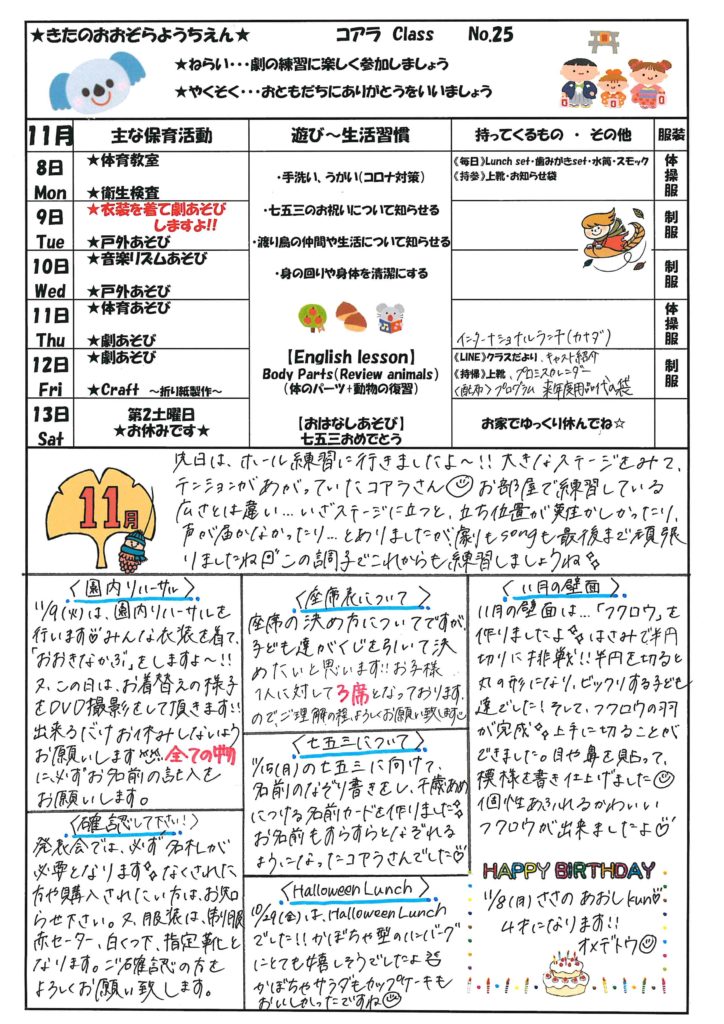 ★きたのおおぞらようちえん★ コアラ Class No.25
★ねらい・・・劇の練習に楽しく参加しましょう
★やくそく・・・おともだちにありがとうをいいましょう
11月 主な保育活動 遊び～生活習慣 持ってくるもの ・ その他 服装
8日 Mon
★体育教室
★衛生検査
9日 Tue
★衣装を着て劇あそび
しますよ!!
★戸外あそび
10日 Wed
★音楽リズムあそび
★戸外あそび
11日 Thu
★体育あそび
★劇あそび
12日 Fri
★劇あそび
★Craft ～折り紙製作～
13日 Sat
第2土曜日
★お休みです★
・手洗い、うがい(コロナ対策)
・七五三のお祝いについて知らせる
・渡り鳥の仲間や生活について知らせる
・身の回りや身体を清潔にする
【English lesson】
Body Parts(Review animals)
(体のパーツ+動物の復習)
【おはなしあそび】
七五三おめでとう
《毎日》Lunch set・歯みがきset・水筒・スモック
《持参》上靴・お知らせ袋
インターナショナルランチ(カナダ)
《LINE》クラスだより、キャスト紹介
《持帰》上靴、プロミスカレンダー
《配布》プログラム 来年度用品代の袋
お家でゆっくり休んでね☆
体操服
制服
制服
体操服
制服
11月
先日は、ホール練習に行きましたよ～!! 大きなステージをみて、
テンションがあがっていたコアラさん☺ お部屋で練習している
広さとは違い…いざステージに立つと、立ち位置が難しかったり、
声が届かなかったり…とありましたが、劇もsongも最後まで頑張
りましたね この調子でこれからも練習しましょうね
〈園内リハーサル〉
11/9(火)は、園内リハーサルを
行います♡みんな衣装を着て、
「おおきなかぶ」をしますよ～!!
又、この日は、お着替えの様子
をDVD撮影をして頂きます!!
出来るだけお休みしないよう
お願いします 全ての物
に、必ずお名前の記入を
お願いします。
〈確認して下さい!〉
発表会では、必ず名札が
必要となります なくされた
方や購入されたい方は、お知
らせ下さい。又、服装は、制服
赤セーター、白くつ下、指定靴と
なります。ご確認の方を
よろしくお願い致します。
〈座席表について〉
座席の決め方についてですが、
子ども達がくじを引いて決
めたいと思います!!お子様
1人に対して3席となっております
ので、ご理解の程、よろしくお願い致します
〈七五三について〉
11/15(月)の七五三に向けて、
名前のなぞり書きをし、千歳あめ
につける名前カードを作りました
お名前もすらすらとなぞれる
ようになったコアラさんでした♡
〈Halloween Lunch〉
10/29(金)は、Halloween Lunch
でした!! かぼちゃ型のハンバーグ
にとても嬉しそうでしたよ
かぼちゃサラダもカップケーキも
おいしかったですね☺
〈11月の壁面〉
11月の壁面は…「フクロウ」を
作りましたよ はさみで半円
切りに挑戦!! 半円を切ると
丸の形になり、ビックリする子ども
達でした!そして、フクロウの羽
が完成 上手に切ることが
できました。目や鼻を貼って、
模様を書き仕上げました☺
個性あふれるかわいい
フクロウが出来ましたよ♡
HAPPY BIRTHDAY
11/8(月) ささの あおし kun♡
4才になります!!
オメデトウ☺